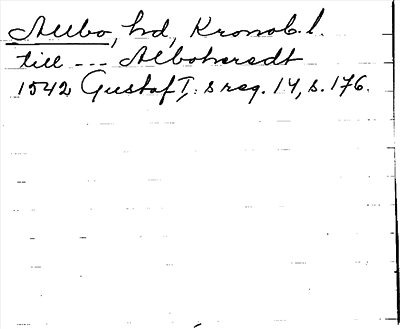 Allbo, hd, Kronob. l.
till --- Albohæredt
1542 Gustaf I:s reg. 14, s. 176.